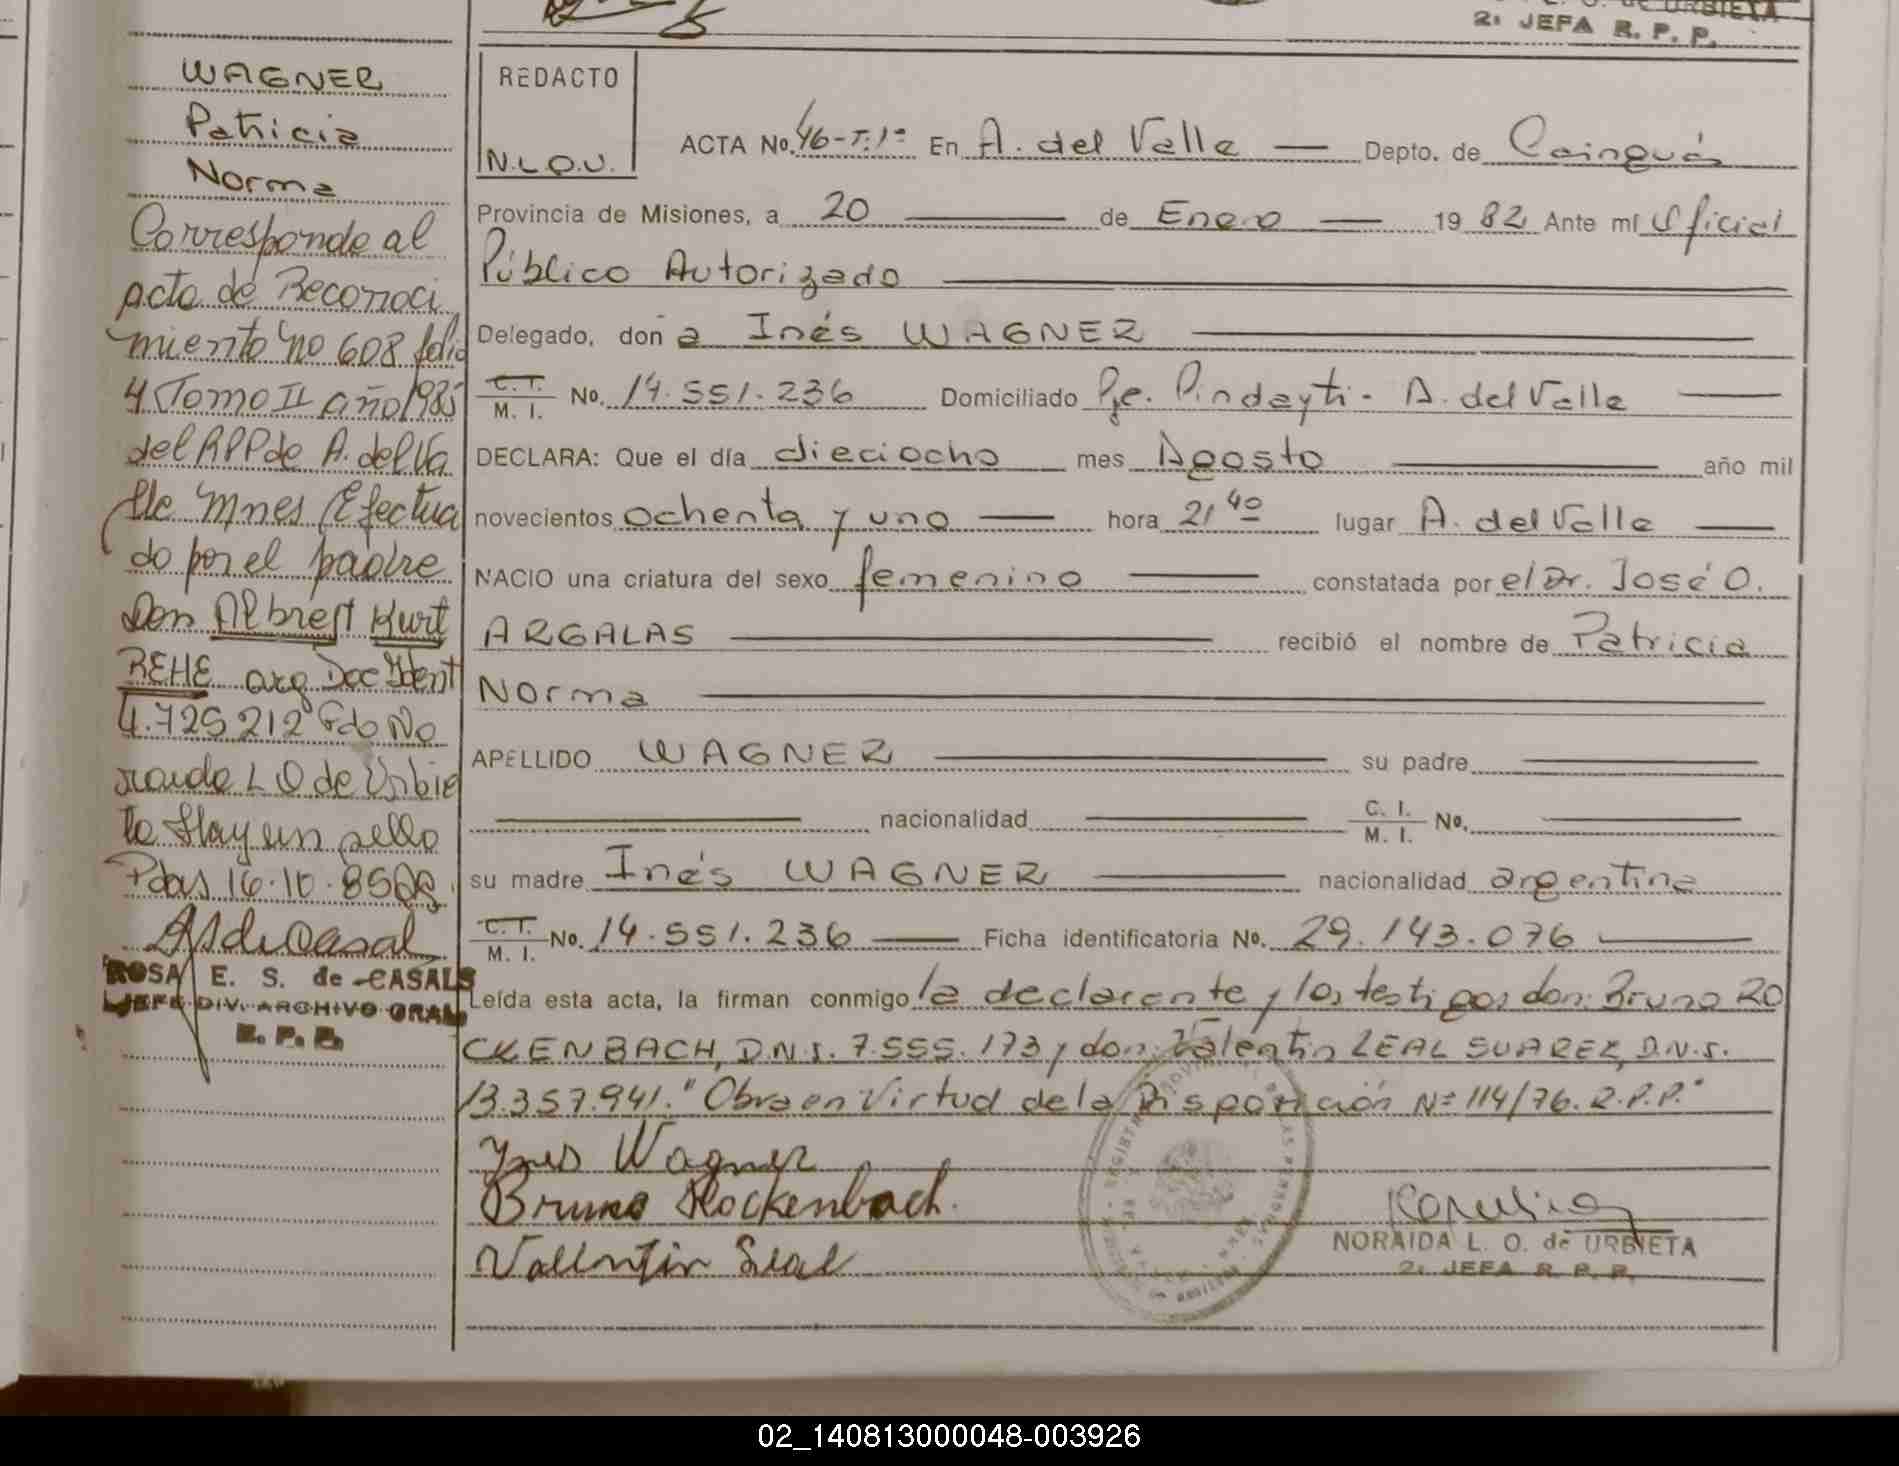 2: JEFA R. P. P.
WAGNER
Patricia
Norma
Corresponde al
acta de Reconoci
miento no 608 folio
4 Tomo II año 1985
del RPP de A. del Va
lle Mnes Efectua
do por el padre
Don Albrest Kurt
REHE arg Doc Ident
4.725.212 Fdo No
raida L O de Urbie
ta Hay un sello
Pdas 16.10.85
ROSA E. S. de CASALS
JEFE DIV. ARCHIVO GRAL
R. P. P.
REDACTO
N.L.O.U.
ACTA No. 46-T:1º En A. del Valle Depto. de Cainguás
Provincia de Misiones, a 20 de Enero 1982 Ante mí Oficial
Público Autorizado
Delegado, don a Inés WAGNER
C. I. M. I. No. 14.551.236 Domiciliado Pje. Pindayti - A. del Valle
DECLARA: Que el día dieciocho mes Agosto año mil
novecientos ochenta y uno hora 21 40 lugar A. del Valle
NACIO una criatura del sexo femenino constatada por el Dr. José O.
ARGALAS recibió el nombre de Patricia
Norma
APELLIDO WAGNER su padre
nacionalidad C. I. M. I. No.
su madre Inés WAGNER nacionalidad argentina
C. I. M. I. No. 14.551.236 Ficha identificatoria No. 29.143.076
Leída esta acta, la firman conmigo la declarante y los testigos don: Bruno RO
CKENBACH, D.N.I. 7.555.173 y don: Valentin LEAL SUAREZ, D.N.I.
13.357.941. "Obra en Virtud de la Disposición Nº 114/76. R.P.P."
Ynes Wagner
Bruno Rockenbach.
Vallentin Leal
NORAIDA L. O. de URBIETA
2: JEFA R. P. P.
02_140813000048-003926